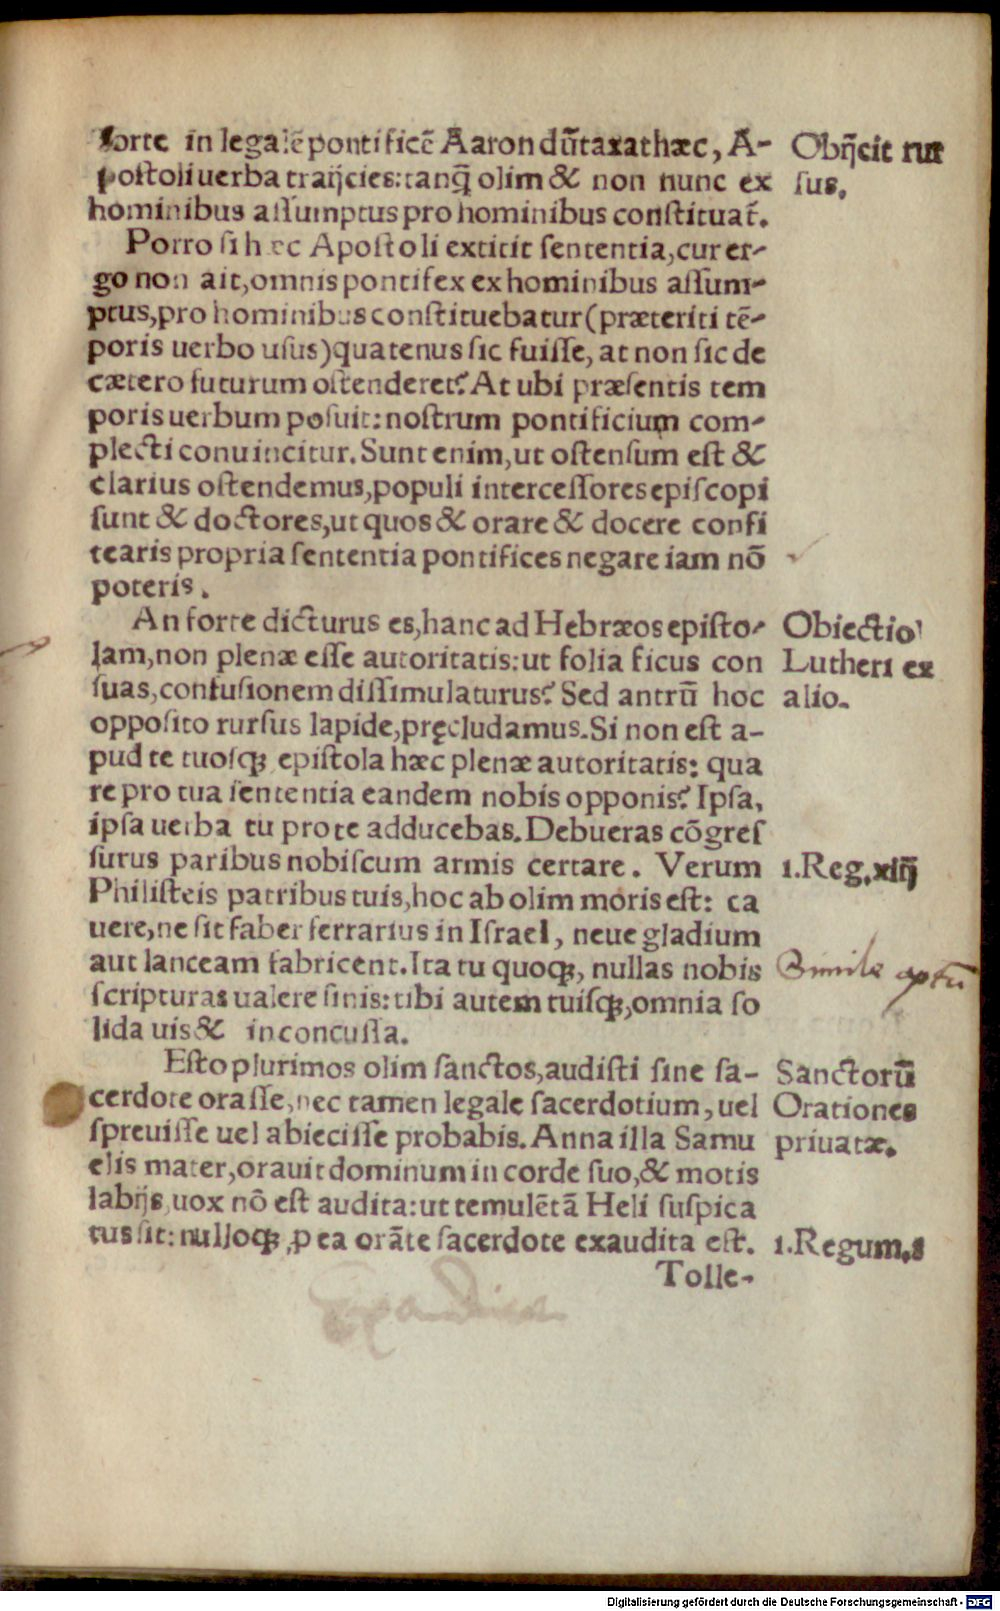 forte in legalē pontificē Aaron dūtaxat hæc, A-
postoli uerba traijcies: tanq̄ olim & non nunc ex
hominibus assumptus pro hominibus constituat̄.
Porro si hæc Apostoli extitit sententia, cur er-
go non ait, omnis pontifex ex hominibus assum-
ptus, pro hominibus constituebatur (præteriti tē-
poris uerbo usus) quatenus sic fuisse, at non sic de
cætero futurum ostenderet? At ubi præsentis tem
poris uerbum posuit: nostrum pontificium com-
plecti conuincitur. Sunt enim, ut ostensum est &
clarius ostendemus, populi intercessores episcopi
sunt & doctores, ut quos & orare & docere confi
tearis propria sententia pontifices negare iam nō
poteris.
An forte dicturus es, hanc ad Hebræos episto-
lam, non plenæ esse autoritatis: ut folia ficus con
suas, confusionem dissimulaturus? Sed antrū hoc
opposito rursus lapide, pręcludamus. Si non est a-
pud te tuosq; epistola hæc plenæ autoritatis: qua
re pro tua sententia eandem nobis opponis? Ipsa,
ipsa uerba tu pro te adducebas. Debueras cōgres
surus paribus nobiscum armis certare. Verum
Philisteis patribus tuis, hoc ab olim moris est: ca
uere, ne sit faber ferrarius in Israel, neue gladium
aut lanceam fabricent. Ita tu quoq;, nullas nobis
scripturas ualere sinis: tibi autem tuisq;, omnia so
lida uis & inconcussa.
Esto plurimos olim sanctos, audisti sine sa-
cerdote orasse, nec tamen legale sacerdotium, uel
spreuisse uel abiecisse probabis. Anna illa Samu
elis mater, orauit dominum in corde suo, & motis
labijs, uox nō est audita: ut temulētā Heli suspica
tus sit: nulloq;, ꝑ ea orāte sacerdote exaudita est.
Tolle-
Obijcit rur
sus.
Obiectio
Lutheri ex
alio.
1. Reg. xiij
Simile aptū
Sanctorū
Orationes
priuatæ.
1. Regum. 1
Digitalisierung gefördert durch die Deutsche Forschungsgemeinschaft - DFG